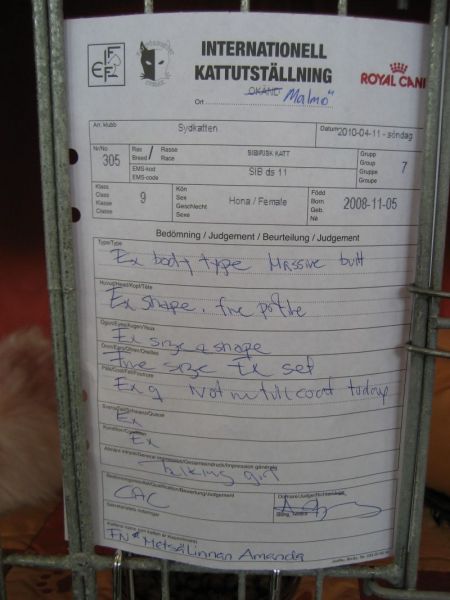 INTERNATIONELL
KATTUTSTÄLLNING
ROYAL CANI
OKÄND
Ort Malmö
Arr. klubb
Sydkatten
Datum 2010-04-11 - söndag
Nr/No
305
Ras Rasse
Breed Race
SIBIRISK KATT
EMS-kod
EMS-code
SIB ds 11
Grupp
Group
Gruppe
Groupe
7
Klass
Class
Klasse
Classe
9
Kön
Sex
Geschlecht
Sexe
Hona / Female
Född
Born
Geb.
Né
2008-11-05
Bedömning / Judgement / Beurteilung / Judgement
Typ/Type
Ex body type Massive built
Huvud/Head/Kopf/Tête
Ex shape, fine profile
Ögon/Eyes/Augen/Yeux
Ex size & shape
Öron/Ears/Ohren/Oreilles
Fine size Ex set
Päls/Coat/Fell/Fourrure
Ex q Not in full coat today
Svans/Tail/Schwanz/Queue
Ex
Kondition/Condition
Ex
Talking girl
CAC
Domare/Judge/Richter/Juge
FN* Metsälinnan Amanda